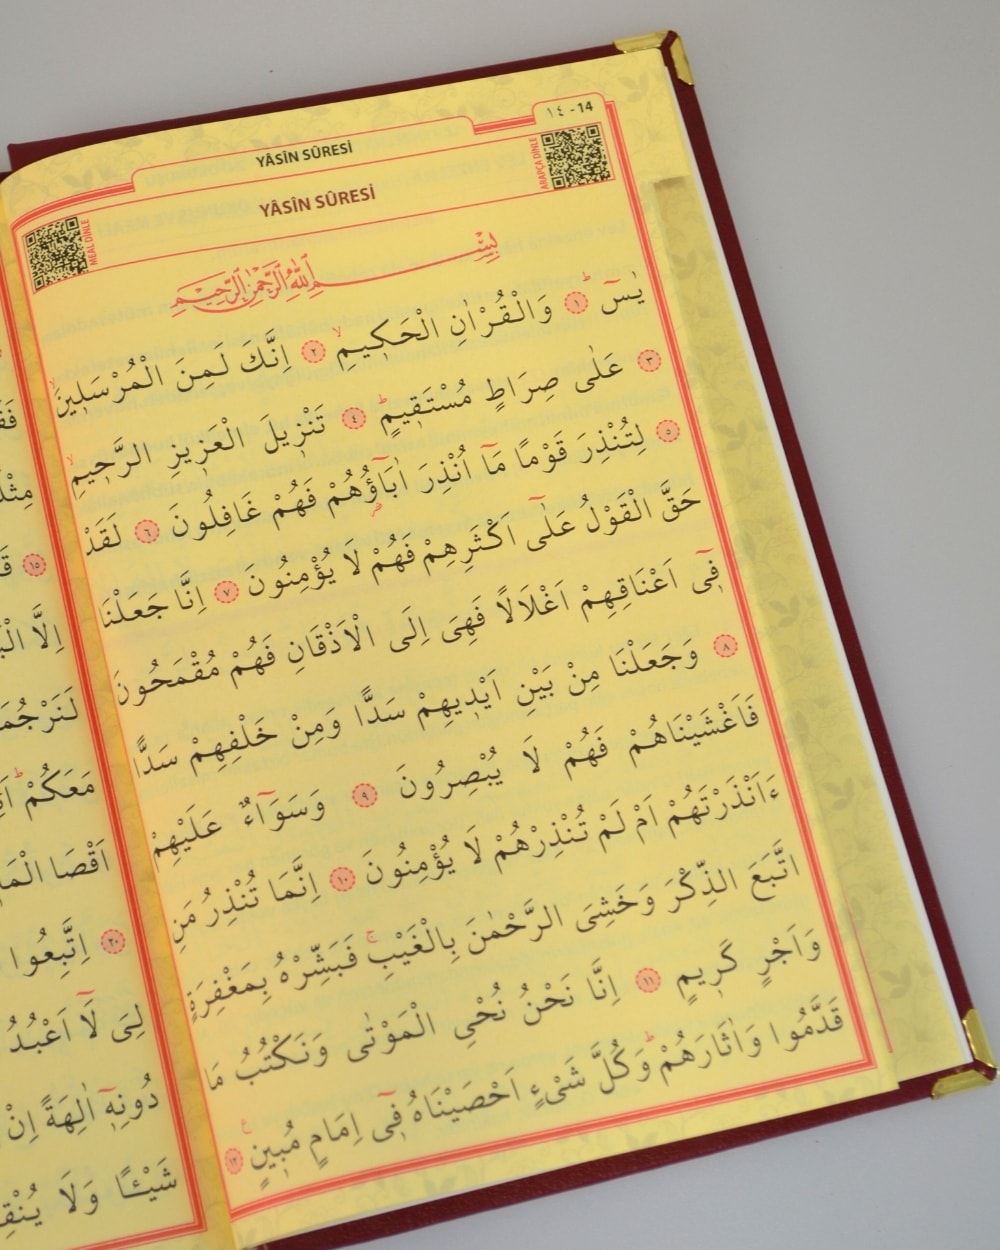 ١٤ - 14
YÂSÎN SÛRESİ
ARAPÇA DİNLE
YÂSÎN SÛRESİ
MEAL DİNLE
بِسْمِ اللّٰهِ الرَّحْمٰنِ الرَّح۪يمِ
يٰسٓ ﴿١﴾ وَالْقُرْاٰنِ الْحَك۪يمِ ﴿٢﴾ اِنَّكَ لَمِنَ الْمُرْسَل۪ينَ
﴿٣﴾ عَلٰى صِرَاطٍ مُسْتَق۪يمٍ ﴿٤﴾ تَنْز۪يلَ الْعَز۪يزِ الرَّح۪يمِ
﴿٥﴾ لِتُنْذِرَ قَوْمًا مَٓا اُنْذِرَ اٰبَٓاؤُ۬هُمْ فَهُمْ غَافِلُونَ ﴿٦﴾ لَقَدْ
حَقَّ الْقَوْلُ عَلٰٓى اَكْثَرِهِمْ فَهُمْ لَا يُؤْمِنُونَ ﴿٧﴾ اِنَّا جَعَلْنَا
ف۪ٓى اَعْنَاقِهِمْ اَغْلَالًا فَهِىَ اِلَى الْاَذْقَانِ فَهُمْ مُقْمَحُونَ
﴿٨﴾ وَجَعَلْنَا مِنْ بَيْنِ اَيْد۪يهِمْ سَدًّا وَمِنْ خَلْفِهِمْ سَدًّا
فَاَغْشَيْنَاهُمْ فَهُمْ لَا يُبْصِرُونَ ﴿٩﴾ وَسَوَٓاءٌ عَلَيْهِمْ
ءَاَنْذَرْتَهُمْ اَمْ لَمْ تُنْذِرْهُمْ لَا يُؤْمِنُونَ ﴿١٠﴾ اِنَّمَا تُنْذِرُ مَنِ
اتَّبَعَ الذِّكْرَ وَخَشِىَ الرَّحْمٰنَ بِالْغَيْبِۚ فَبَشِّرْهُ بِمَغْفِرَةٍ
وَاَجْرٍ كَر۪يمٍ ﴿١١﴾ اِنَّا نَحْنُ نُحْيِ الْمَوْتٰى وَنَكْتُبُ مَا
قَدَّمُوا وَاٰثَارَهُمْ وَكُلَّ شَىْءٍ اَحْصَيْنَاهُ ف۪ٓى اِمَامٍ مُب۪ينٍ ﴿١٢﴾
﴿١٥﴾
اِلَّا
لَنَرْجُمَ
مَعَكُمْ
اَقْصَا
﴿٢٠﴾ اِتَّبِعُوا
لِىَ لَٓا اَعْبُدُ
دُونِه۪ٓ اٰلِهَةً اِنْ
شَيْـًٔا وَلَا